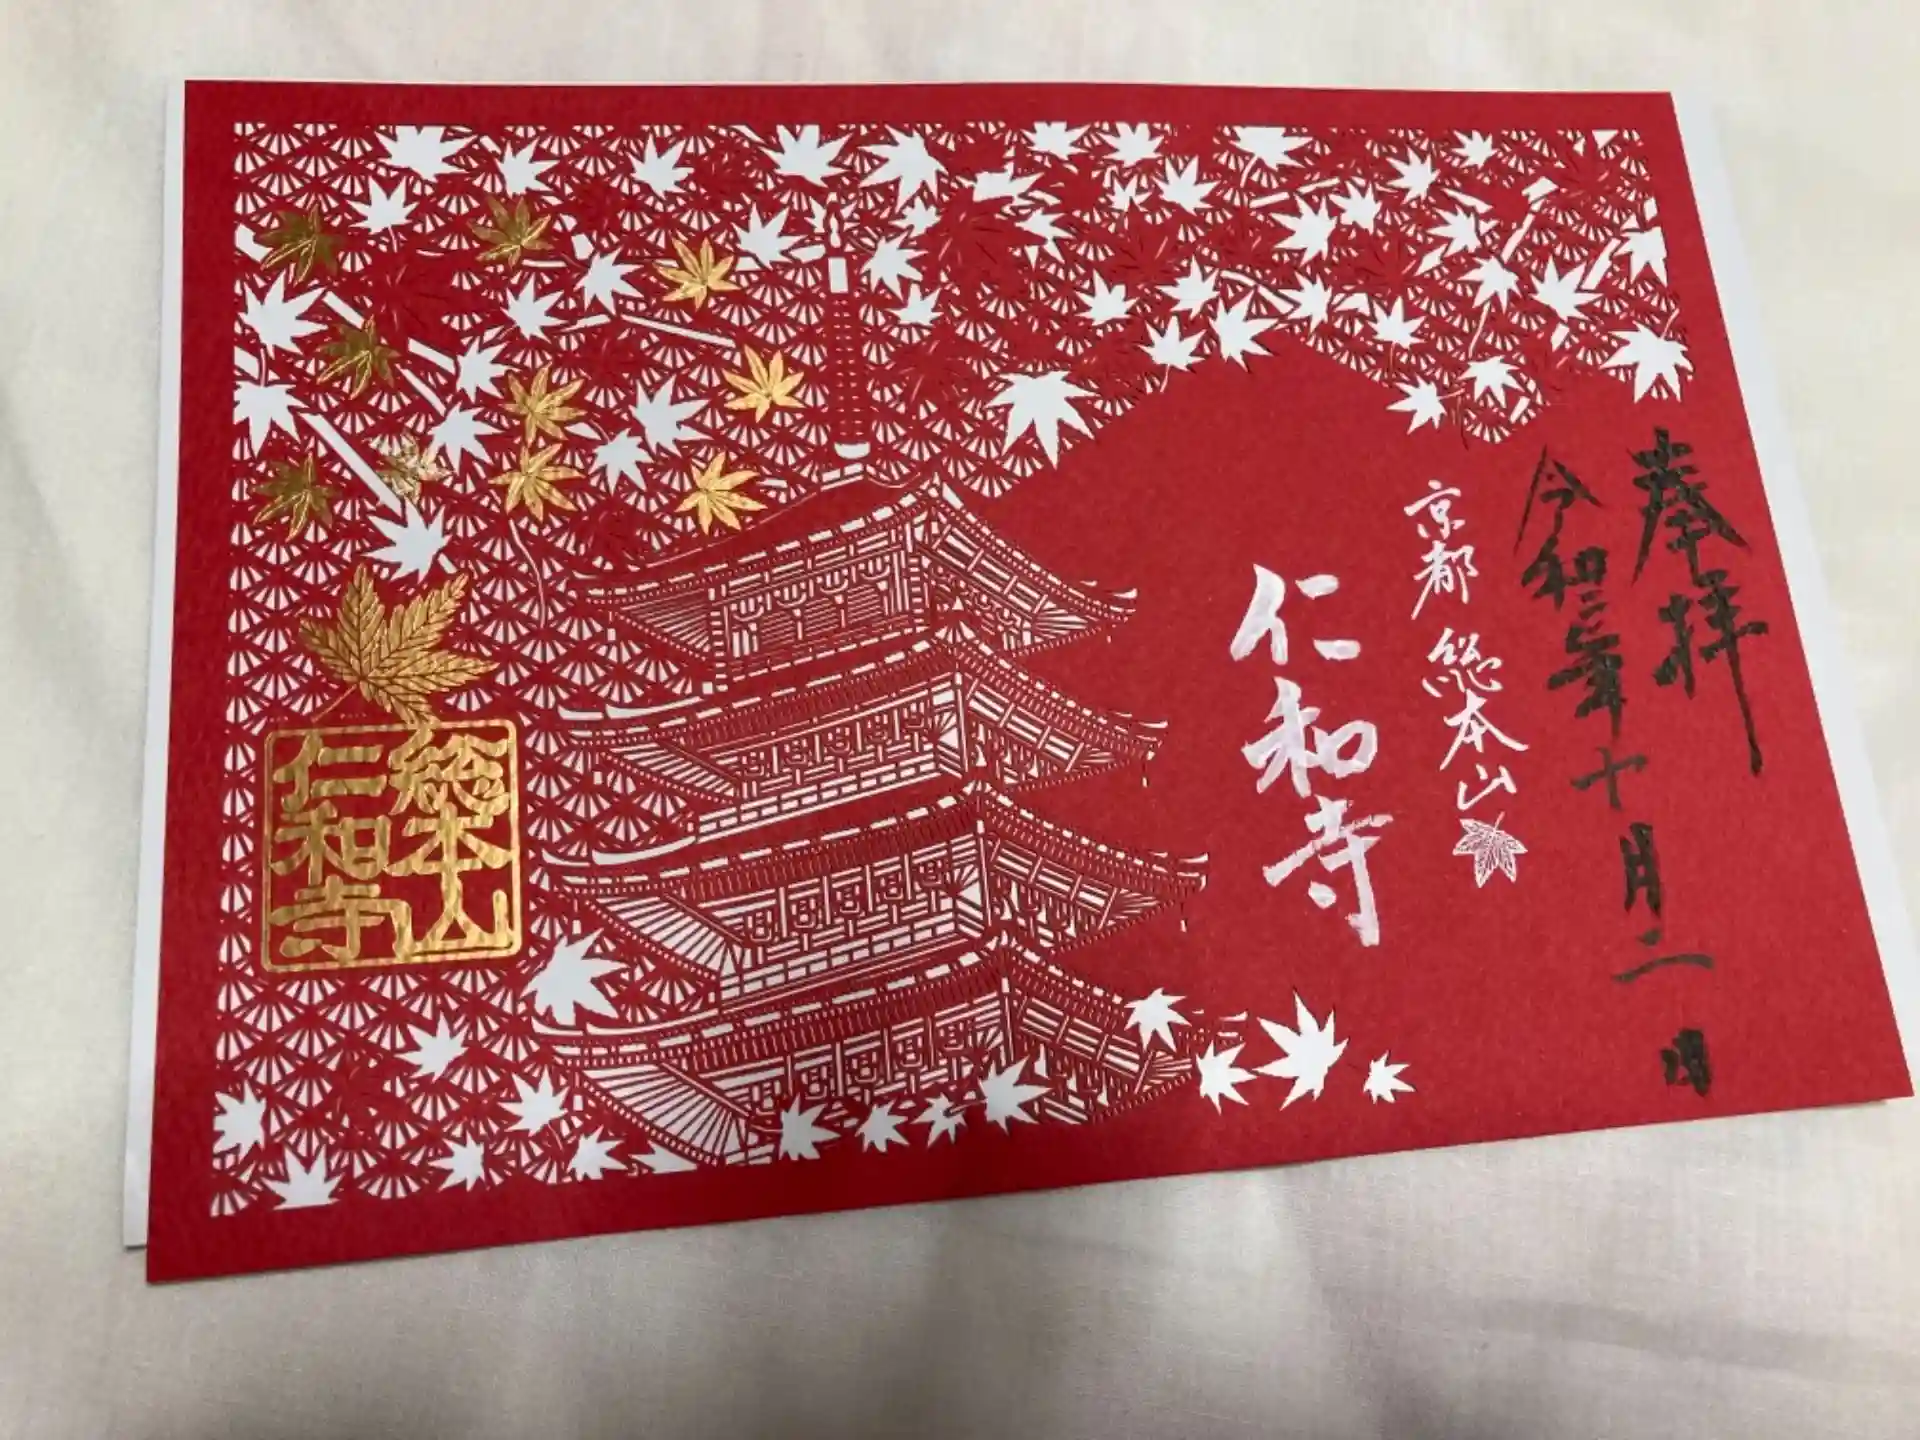 奉拝
令和三年十月二日
京都 総本山
仁和寺
総本山
仁和寺